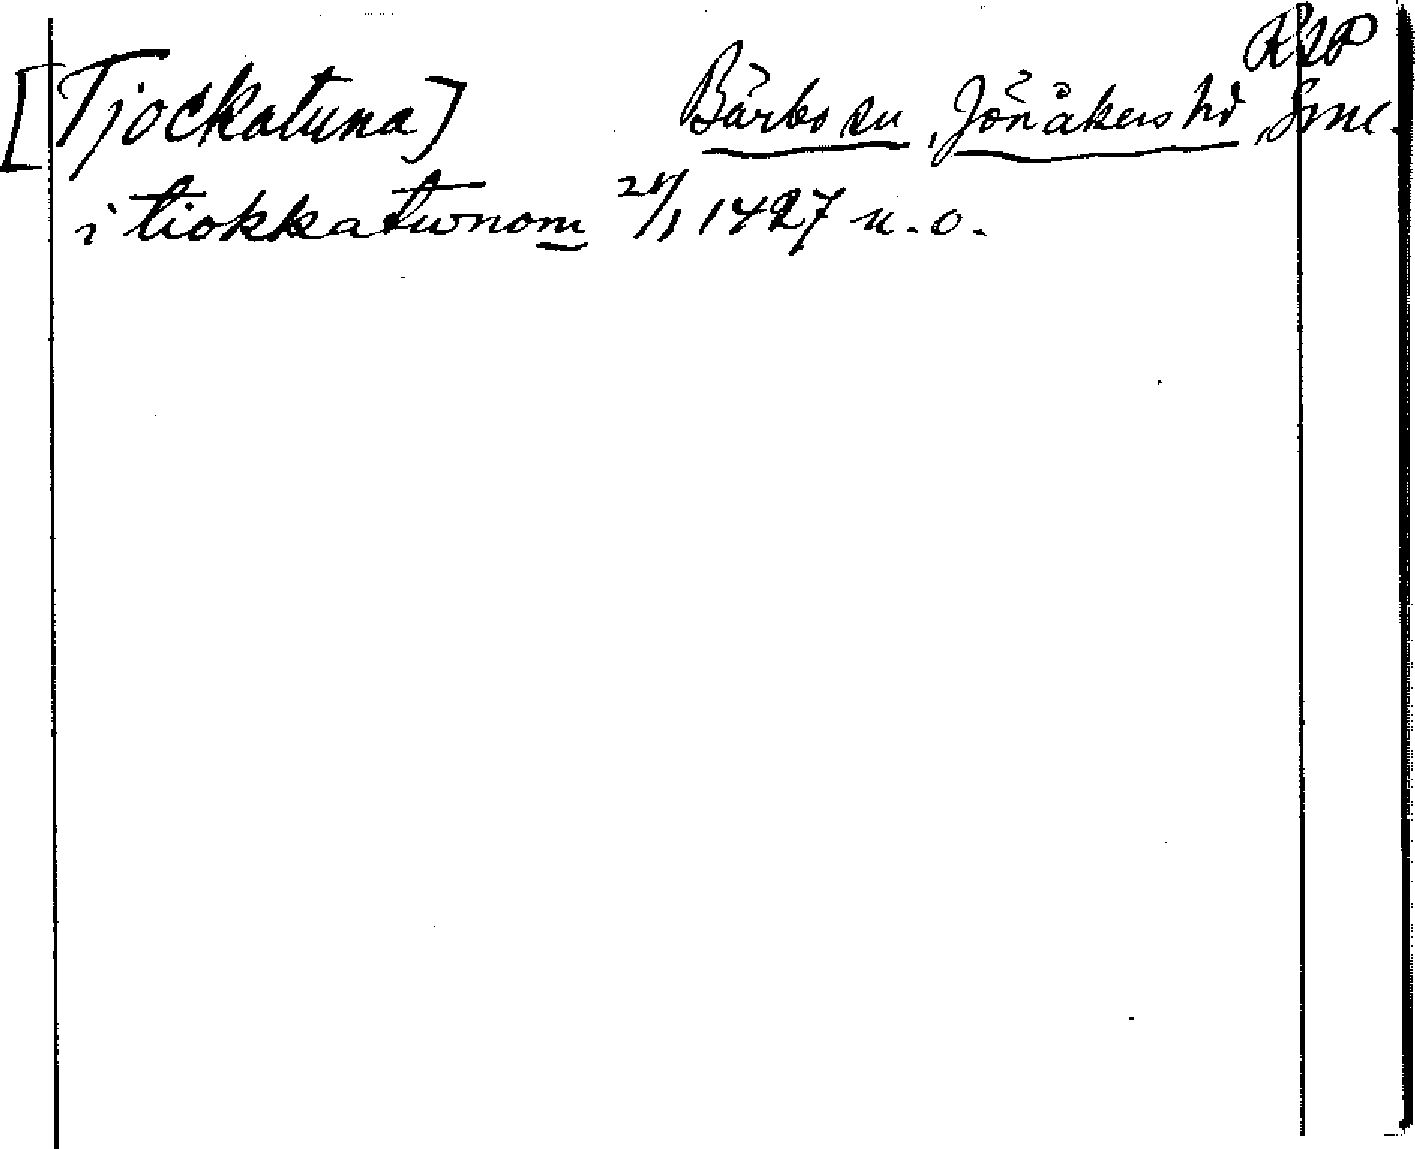 RAP
[Tjockatuna] Bärbo sn, Jönåkers hd, Sml.
i tiokkatwnom 21/1 1427 u. o.